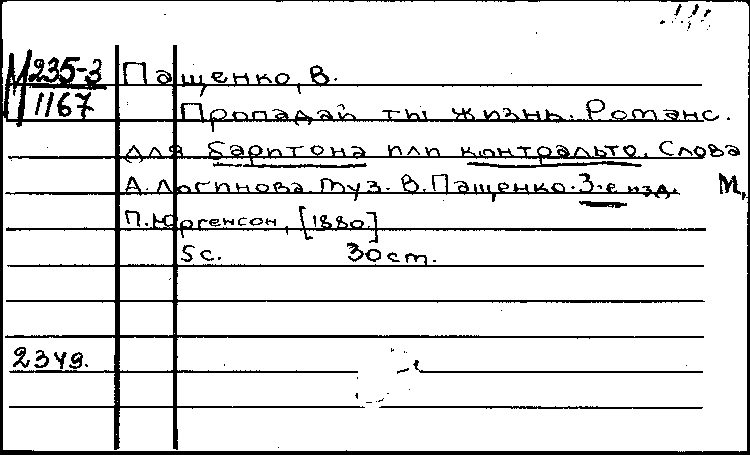 М 235-3
1167
Пащенко, В.
Пропадай ты жизнь. Романс.
для баритона или контральто. Слова
А. Логинова. Муз. В. Пащенко. 3-е изд. М,
П. Юргенсон, [1880.]
5с. 30 ст.
2349.